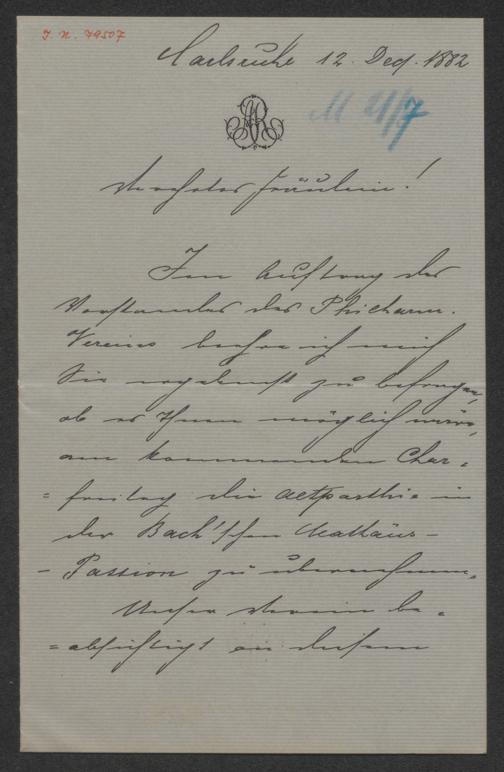 J. N. 79507
Carlsruhe 12. Dez. 1882
M 21/7
Verehrtes Fräulein!
Im Auftrag des
Vorstandes des Philharm.
Vereines beehre ich mich
Sie ergebenst zu befragen,
ob es Ihnen möglich wäre,
am kommenden Char-
=freitag die Altparthie in
der Bach'schen Mathäus-
-Passion zu übernehmen.
Unser Verein be-
=absichtigt an diesem